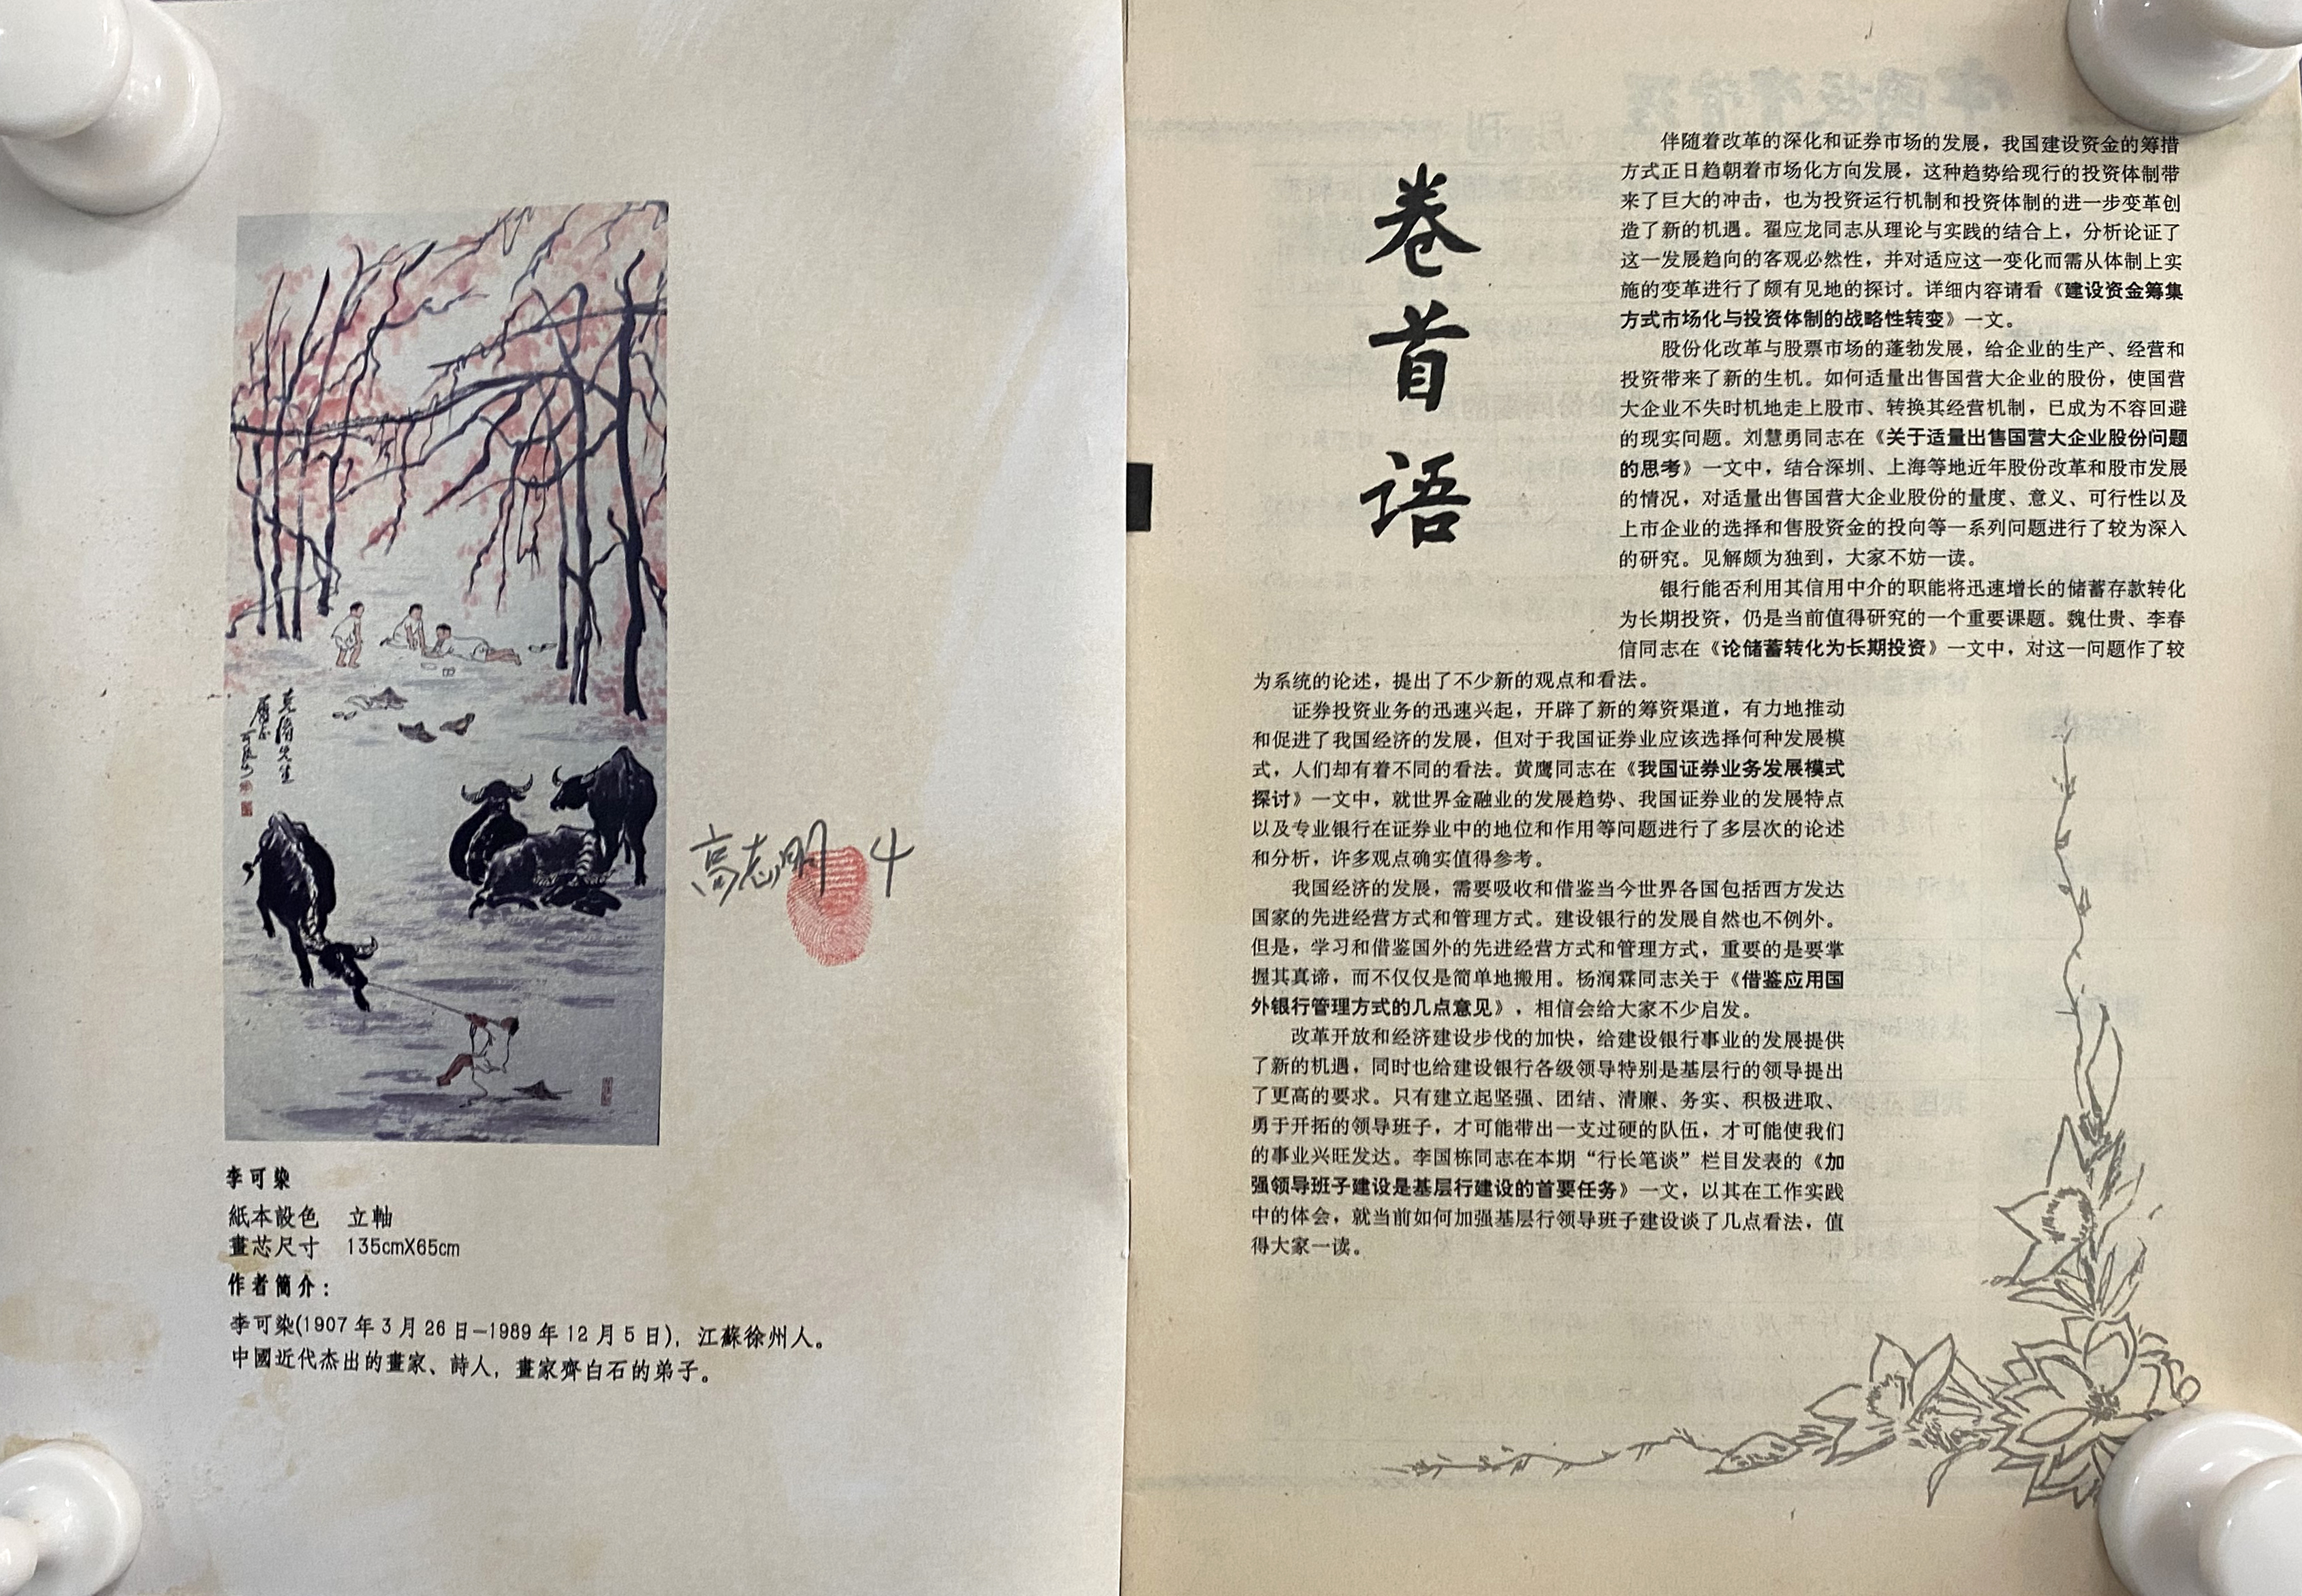 克濟先生
屬正
可染
高志明 4
李可染
紙本設色 立軸
畫芯尺寸 135cmX65cm
作者簡介：
李可染(1907年3月26日-1989年12月5日)，江蘇徐州人。
中國近代杰出的畫家、詩人，畫家齊白石的弟子。
卷首语
伴随着改革的深化和证券市场的发展，我国建设资金的筹措
方式正日趋朝着市场化方向发展，这种趋势给现行的投资体制带
来了巨大的冲击，也为投资运行机制和投资体制的进一步变革创
造了新的机遇。翟应龙同志从理论与实践的结合上，分析论证了
这一发展趋向的客观必然性，并对适应这一变化而需从体制上实
施的变革进行了颇有见地的探讨。详细内容请看《建设资金筹集
方式市场化与投资体制的战略性转变》一文。
股份化改革与股票市场的蓬勃发展，给企业的生产、经营和
投资带来了新的生机。如何适量出售国营大企业的股份，使国营
大企业不失时机地走上股市、转换其经营机制，已成为不容回避
的现实问题。刘慧勇同志在《关于适量出售国营大企业股份问题
的思考》一文中，结合深圳、上海等地近年股份改革和股市发展
的情况，对适量出售国营大企业股份的量度、意义、可行性以及
上市企业的选择和售股资金的投向等一系列问题进行了较为深入
的研究。见解颇为独到，大家不妨一读。
银行能否利用其信用中介的职能将迅速增长的储蓄存款转化
为长期投资，仍是当前值得研究的一个重要课题。魏仕贵、李春
信同志在《论储蓄转化为长期投资》一文中，对这一问题作了较
为系统的论述，提出了不少新的观点和看法。
证券投资业务的迅速兴起，开辟了新的筹资渠道，有力地推动
和促进了我国经济的发展，但对于我国证券业应该选择何种发展模
式，人们却有着不同的看法。黄鹰同志在《我国证券业务发展模式
探讨》一文中，就世界金融业的发展趋势、我国证券业的发展特点
以及专业银行在证券业中的地位和作用等问题进行了多层次的论述
和分析，许多观点确实值得参考。
我国经济的发展，需要吸收和借鉴当今世界各国包括西方发达
国家的先进经营方式和管理方式。建设银行的发展自然也不例外。
但是，学习和借鉴国外的先进经营方式和管理方式，重要的是要掌
握其真谛，而不仅仅是简单地搬用。杨润霖同志关于《借鉴应用国
外银行管理方式的几点意见》，相信会给大家不少启发。
改革开放和经济建设步伐的加快，给建设银行事业的发展提供
了新的机遇，同时也给建设银行各级领导特别是基层行的领导提出
了更高的要求。只有建立起坚强、团结、清廉、务实、积极进取、
勇于开拓的领导班子，才可能带出一支过硬的队伍，才可能使我们
的事业兴旺发达。李国栋同志在本期“行长笔谈”栏目发表的《加
强领导班子建设是基层行建设的首要任务》一文，以其在工作实践
中的体会，就当前如何加强基层行领导班子建设谈了几点看法，值
得大家一读。